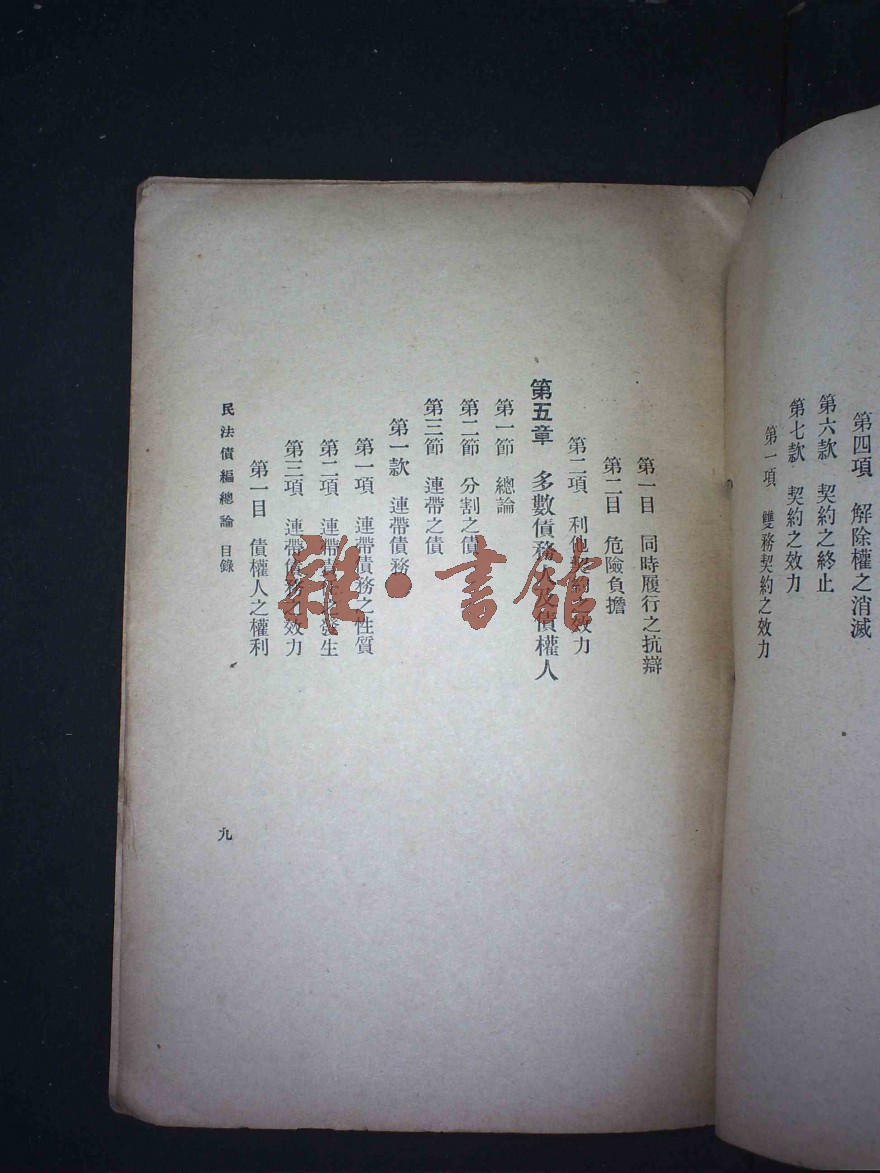 第四項　解除權之消滅
第六款　契約之終止
第七款　契約之效力
第一項　雙務契約之效力
第一目　同時履行之抗辯
第二目　危險負擔
第二項　利他契約之效力
第五章　多數債務人及債權人
第一節　總論
第二節　分割之債
第三節　連帶之債
第一款　連帶債務
第一項　連帶債務之性質
第二項　連帶債務之發生
第三項　連帶債務之效力
第一目　債權人之權利
民法債編總論　目錄
九
雜·書館